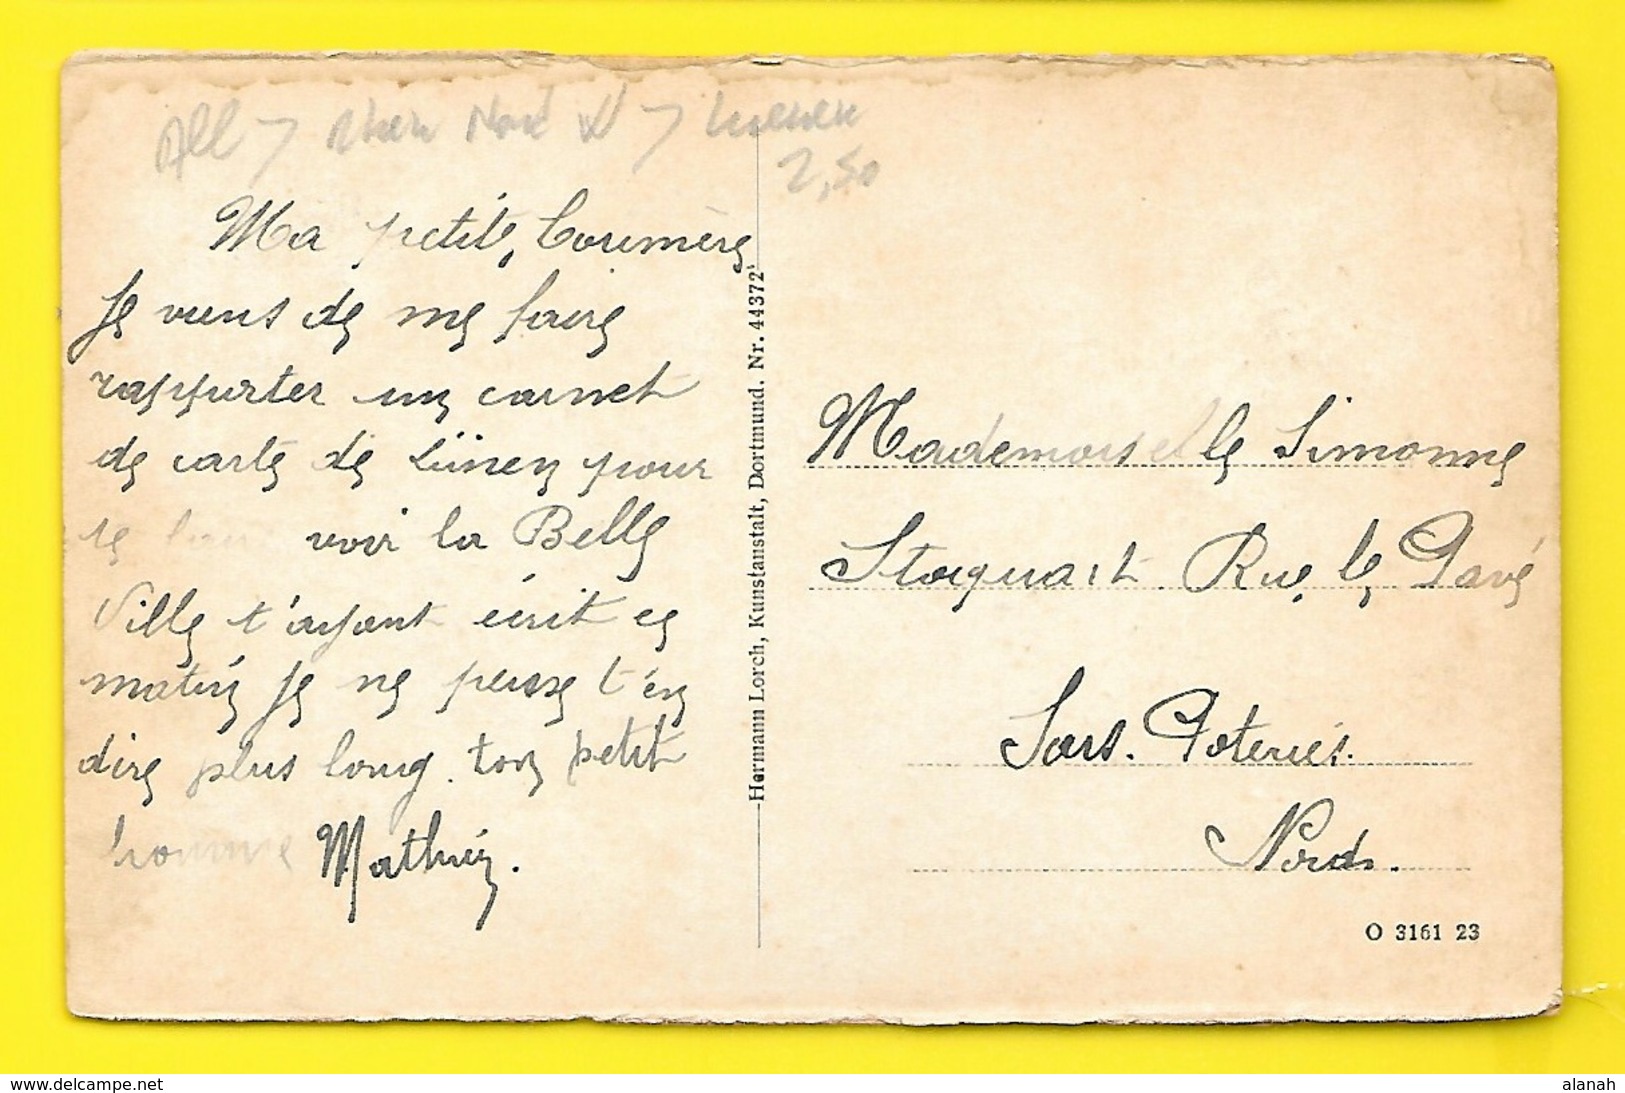 All > Rhein Nord W > Luenen
2,50
Ma petite
Je viens de me faire
rapporter un carnet
de carte de Lünen pour
te voir la Belle
Ville t'ayant écrit ce
matin je ne puisse t'en
dire plus long. ton petit
homme Mathieu.
Hermann Lorch, Kunstanstalt, Dortmund. Nr. 44372
Mademoiselle Simonne
Staquart Rue le Pavé
Sars. Poteries.
Nord.
O 3161 23
www.delcampe.net
alanah